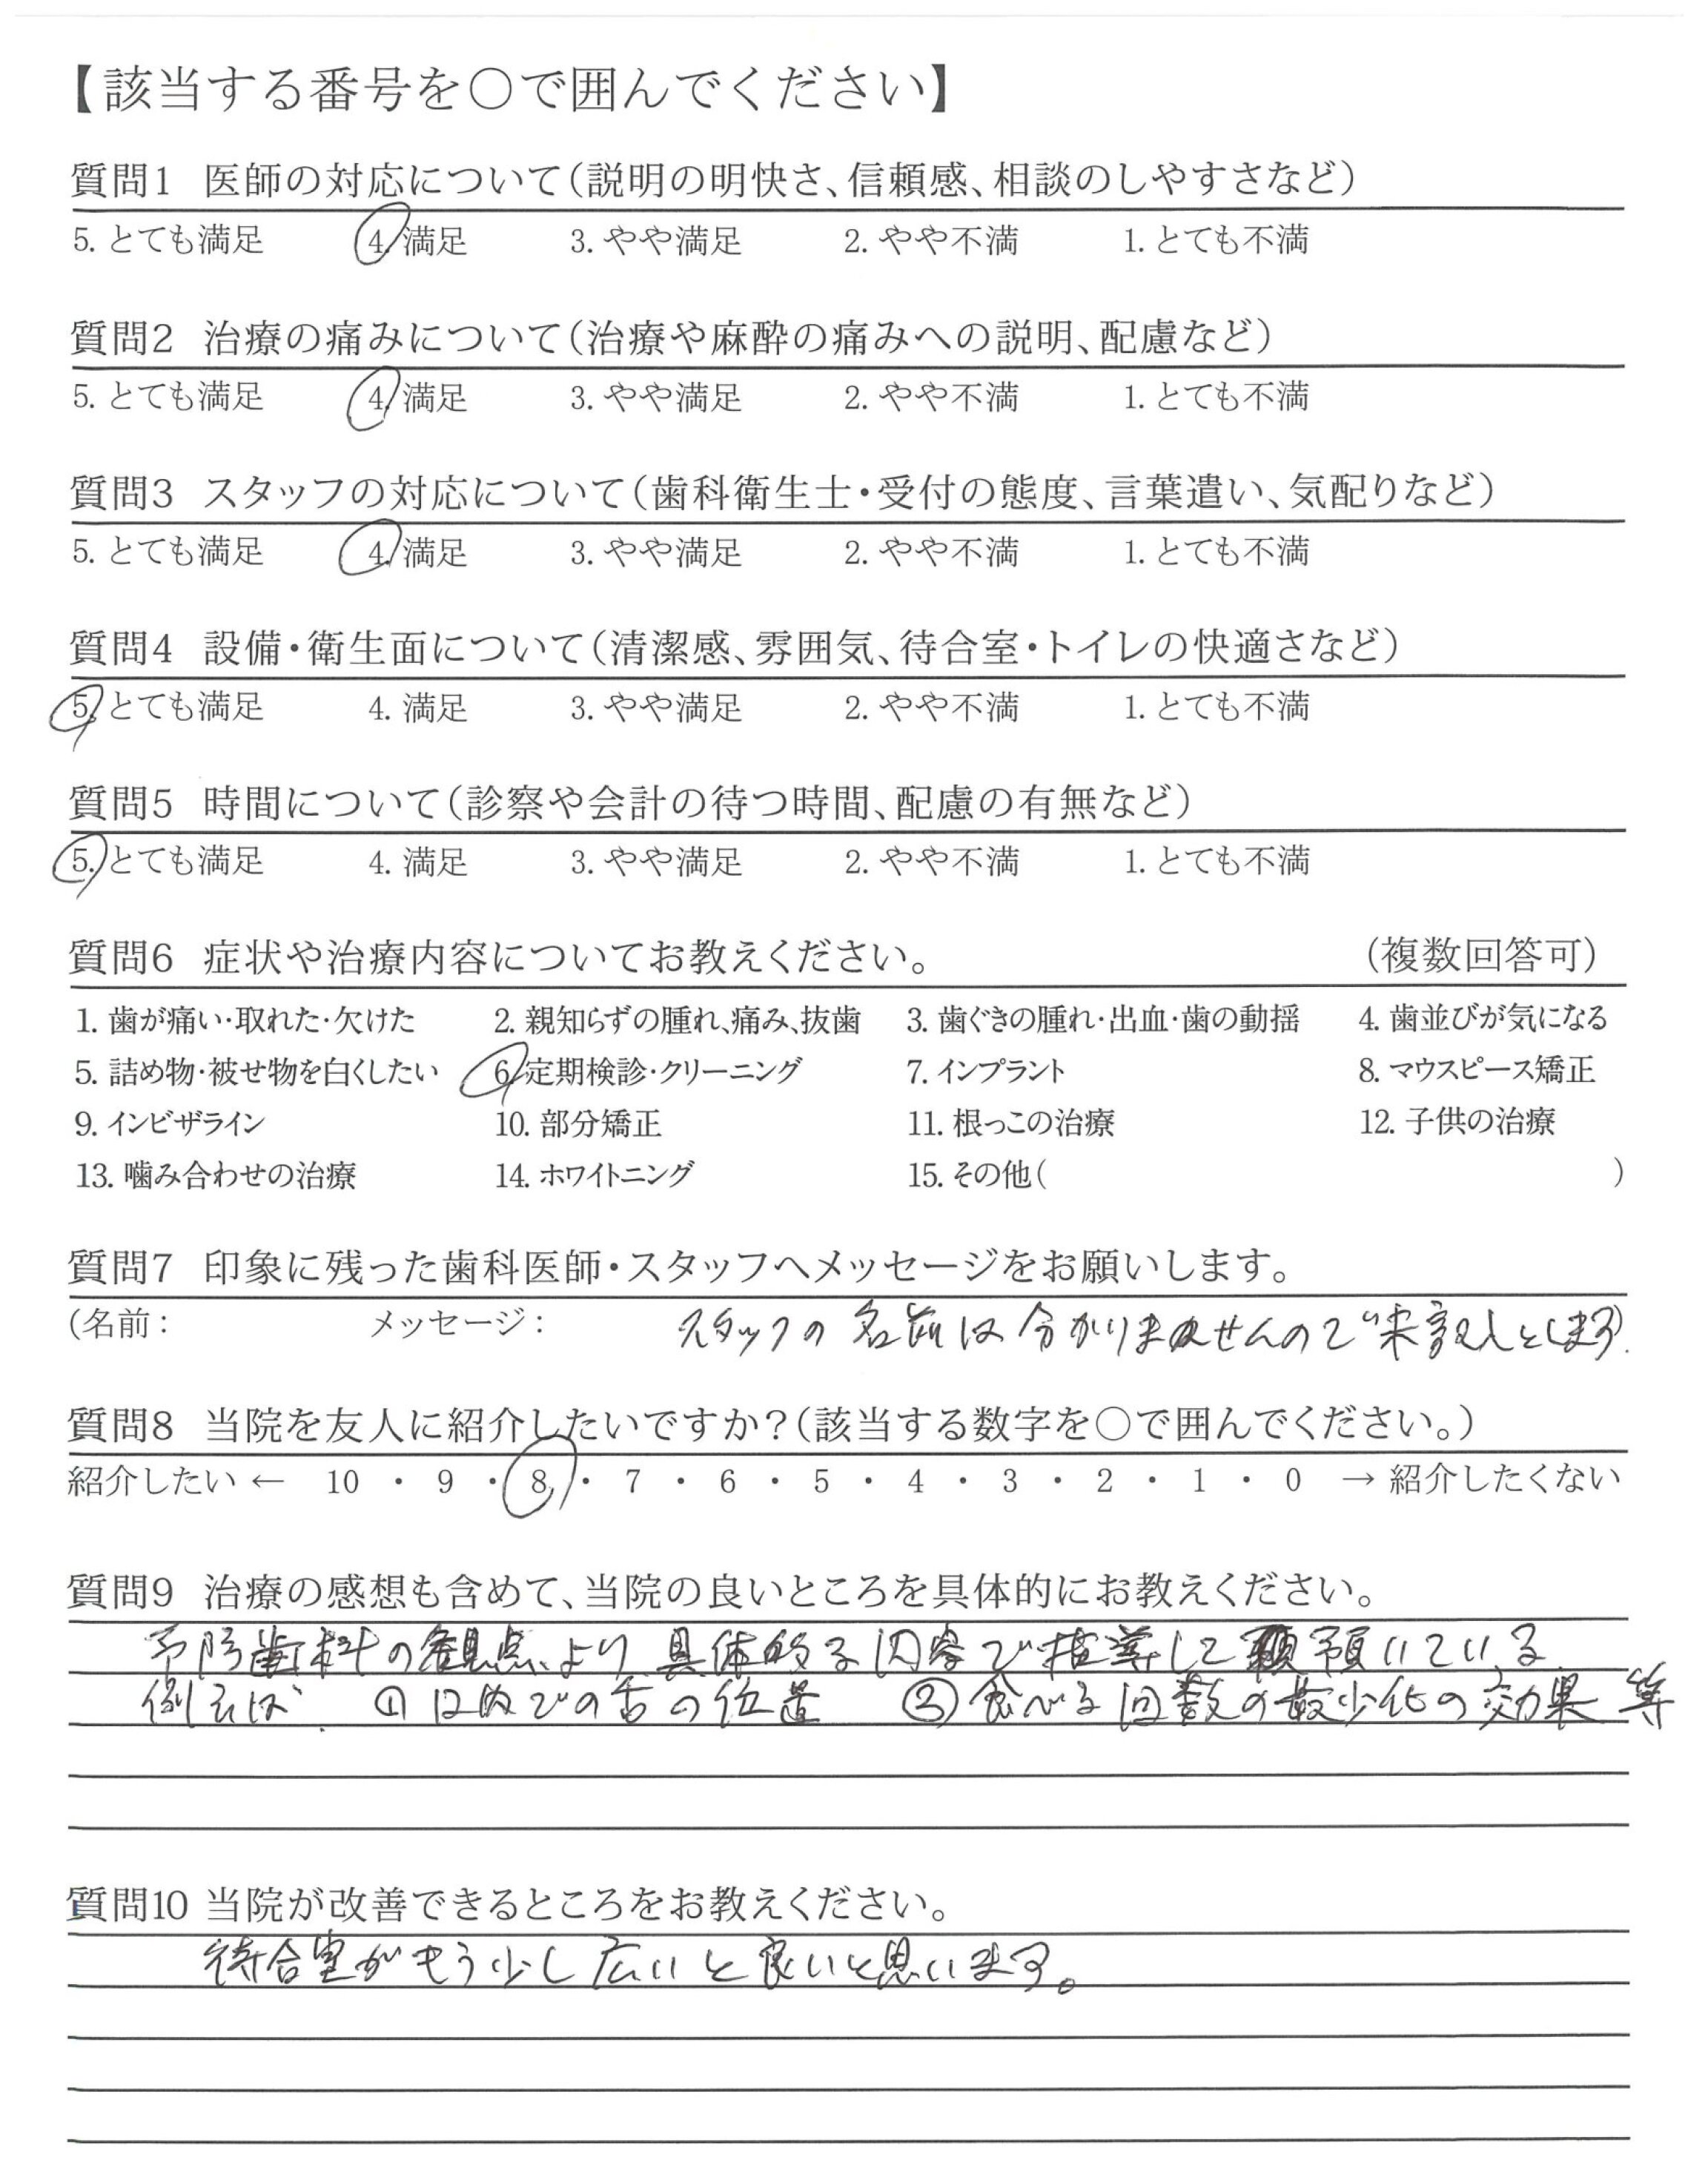 【該当する番号を〇で囲んでください】
質問1 医師の対応について(説明の明快さ、信頼感、相談のしやすさなど)
5. とても満足 4. 満足 3. やや満足 2. やや不満 1. とても不満
質問2 治療の痛みについて(治療や麻酔の痛みへの説明、配慮など)
5. とても満足 4. 満足 3. やや満足 2. やや不満 1. とても不満
質問3 スタッフの対応について(歯科衛生士・受付の態度、言葉遣い、気配りなど)
5. とても満足 4. 満足 3. やや満足 2. やや不満 1. とても不満
質問4 設備・衛生面について(清潔感、雰囲気、待合室・トイレの快適さなど)
5. とても満足 4. 満足 3. やや満足 2. やや不満 1. とても不満
質問5 時間について(診察や会計の待つ時間、配慮の有無など)
5. とても満足 4. 満足 3. やや満足 2. やや不満 1. とても不満
質問6 症状や治療内容についてお教えください。 (複数回答可)
1. 歯が痛い・取れた・欠けた 2. 親知らずの腫れ、痛み、抜歯 3. 歯ぐきの腫れ・出血・歯の動揺 4. 歯並びが気になる
5. 詰め物・被せ物を白くしたい 6. 定期検診・クリーニング 7. インプラント 8. マウスピース矯正
9. インビザライン 10. 部分矯正 11. 根っこの治療 12. 子供の治療
13. 噛み合わせの治療 14. ホワイトニング 15. その他( )
質問7 印象に残った歯科医師・スタッフへメッセージをお願いします。
(名前: メッセージ: スタッフの名前は分かりませんので未記入とします)
質問8 当院を友人に紹介したいですか?(該当する数字を〇で囲んでください。)
紹介したい ← 10 ・ 9 ・ 8 ・ 7 ・ 6 ・ 5 ・ 4 ・ 3 ・ 2 ・ 1 ・ 0 → 紹介したくない
質問9 治療の感想も含めて、当院の良いところを具体的にお教えください。
予防歯科の観点より、具体的な内容で指導して頂いている
例えば ① の舌の位置 ② 食べる回数の最少化の効果 等
質問10 当院が改善できるところをお教えください。
待合室がもう少し広いと良いと思います。